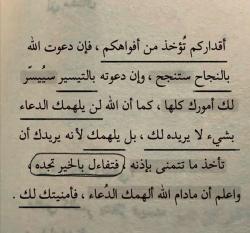 أقداركم تُؤخذ من أفواهكم ، فإن دعوت الله
بالنجاح ستنجح ، وإن دعوته بالتيسير سيُيسّر
لك أمورك كلها ، كما أن الله لن يلهمك الدعاء
بشيء لا يريده لك ، بل يلهمك لأنه يريدك أن
تأخذ ما تتمنى بإذنه ، فتفاءل بالخير تجده ،
واعلم أن مادام الله ألهمك الدُعاء ، فأمنيتك لك .